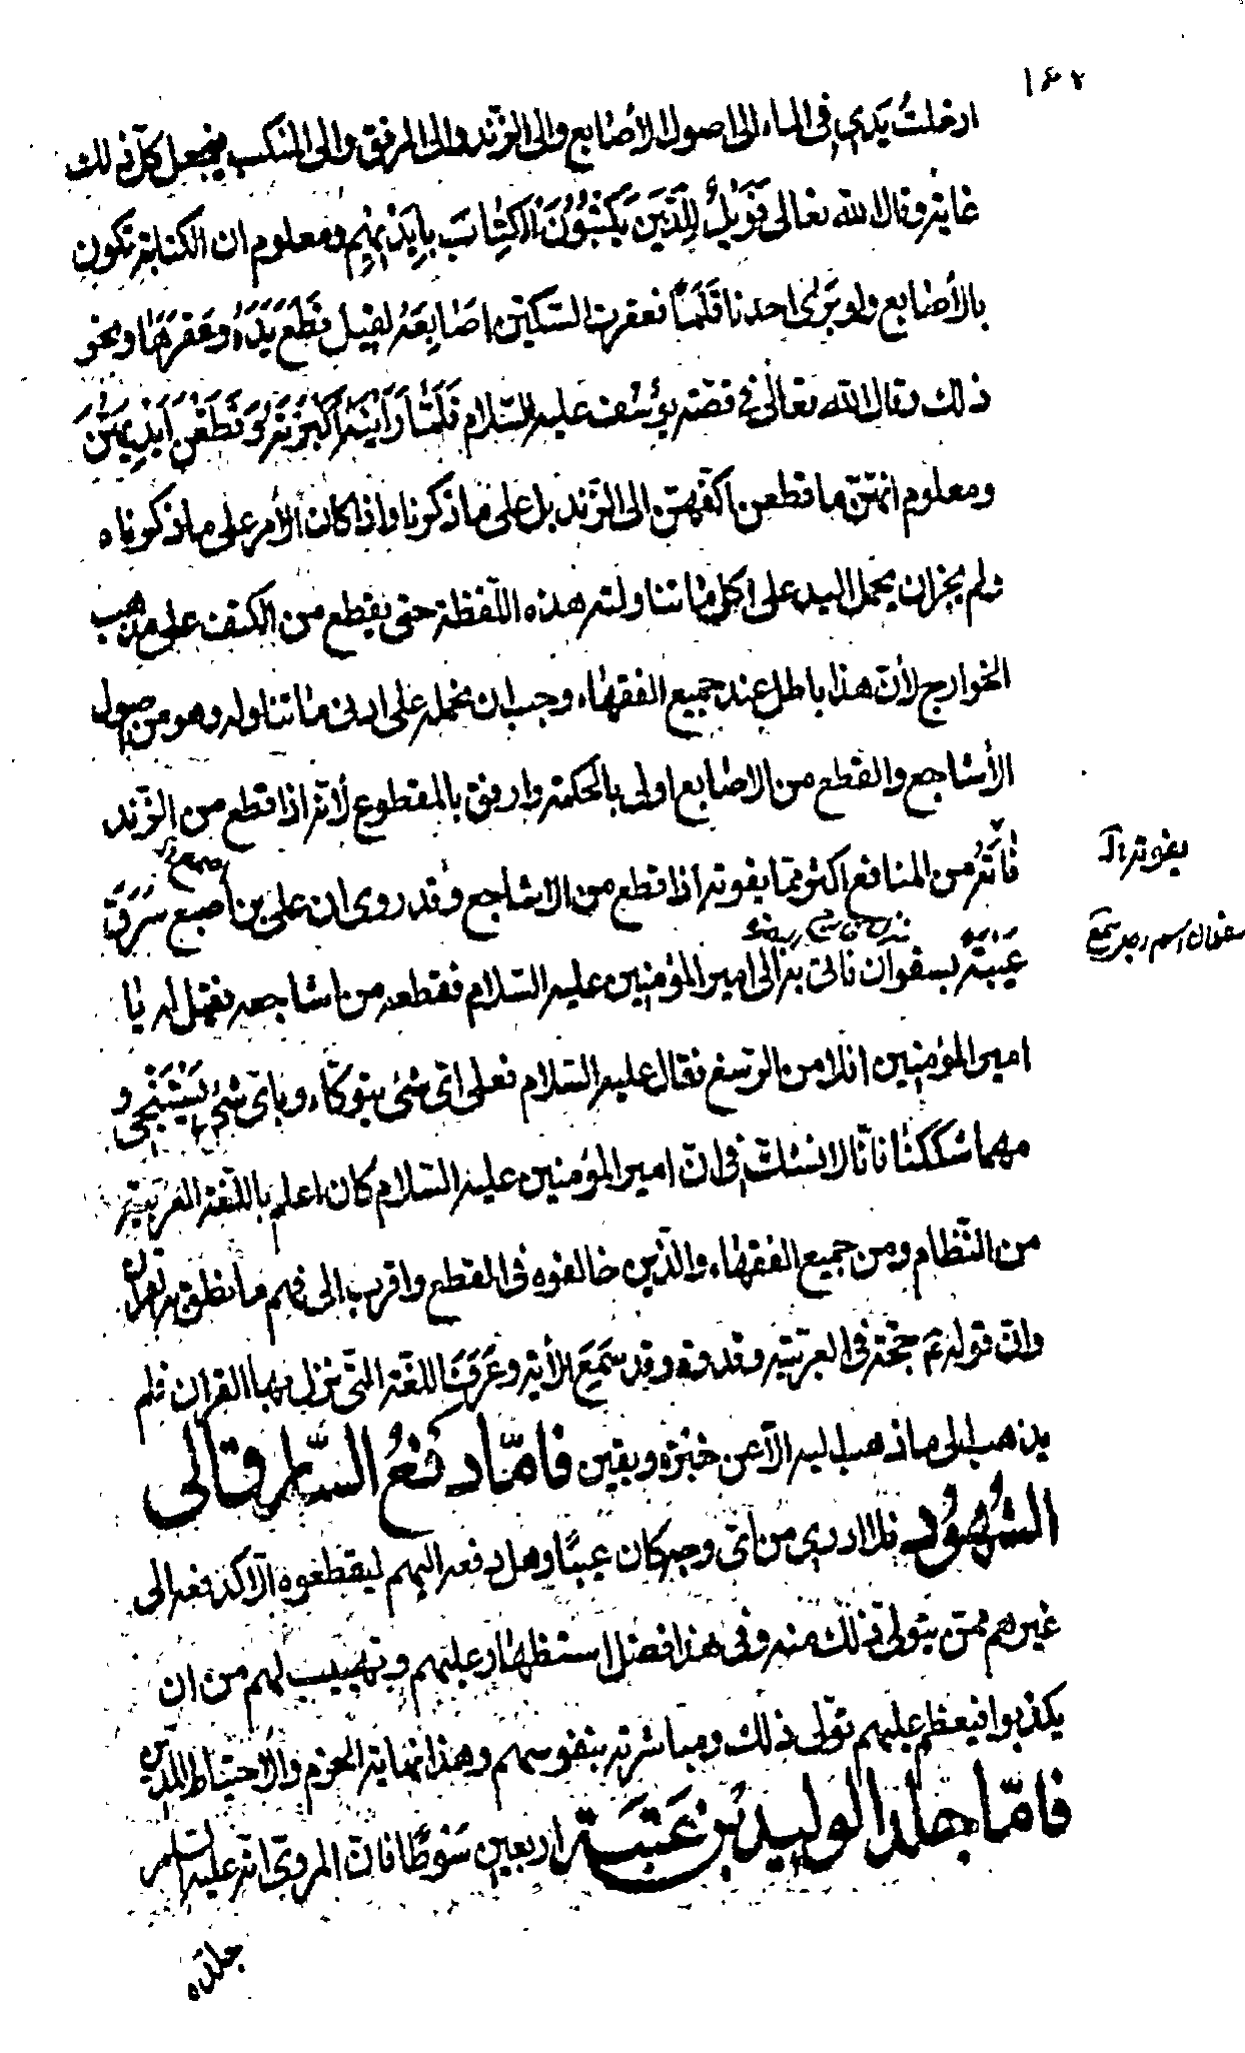 ١٦٢
ادخلتُ يَدي في الماء الى اصول الأصٰابع والى الزّند والى المرفق والى المنكب فيجعل كلّ ذلك
غاية وقال الله تعالى فَوَيْلٌ لِلَّذينَ يَكْتُبُونَ الْكِتٰابَ بِاَيْدْيهِمْ ومعلوم ان الكتابة تكون
بالأصٰابع ولو بَرىٰ احدنا قَلَماً فعقرت السّكين اصَابِعَهُ لقيل قطَعَ يَدَهُ وعَقَرَهٰا ونحو
ذلك وقال الله تعالى في قصّة يؤسُف عليه السّلام فَلَمّٰا رَاَيْنَهُ اَكْبَرْنَهُ وَقَطَعْنَ اَيْدِيَهُنَّ
ومعلوم انهنّ ما قطعن اكفّهنّ الى الزّند بل على ما ذكرنا واذا كان الأمر على ما ذكرناه
ولم يجز ان يحمل اليد على كل مٰا تناولته هذه اللّفظة حتى يقطع من الكتف على مذهب
الخوارج لأنّ هذا باطل عند جميع الفقهٰاء وجب ان نحمله على ادنى مٰا تناوله وهو من اصول
الأشاجع والقطع من الاصٰابع اولى بالحكمة وارفق بالمقطوع لأنّه اذا قطع من الزّند
فٰاتَهُ من المنافع اكثر ممّا يفوته اذا قطع من الاشاجع وقد روى ان على بن اصبع سَرَقَ
يفوته
عَيْبَةً بسفوان فاتى به الى امير المؤمنين عليه السّلام فقطعه من اشاجعه فقيل له يٰا
سفوان اسم
امير المؤمنين افلا من الرّسغ فقال عليه السّلام فعلى اىّ شئ يتوكّاء وباىّ شئ يَسْتَنْجى و
مهما شككنٰا فانّا لا نشكّ فى انّ امير المؤمنين عليه السّلام كان اعلم باللّغة العربيّة
من النّظام ومن جميع الفقهٰاء والّذين خالفوه فى القطع واقرب الى فهم ما نطق به القران
وانّ قوله عم حجّة فى العربيّة وقدوة وقد سَمِعَ الأية وعَرَفَ اللغّة الّتى نزل بها القران فلم
يذهب الى ما ذهب اليه الّا عن خبْرَة ويقين فامّا دَفْعُ السّارق الى
الشُهُود فلا ادرى من اىّ وجه كان عيبًا وهل دفعه اليهم ليقطعوه الّا كدفعه الى
غيرهم ممّن يتولى ذلك منه وفى هذا فضل استظهٰار عليهم وتهييب لهم من ان
يكذبوا فيعظم عليهم تولّى ذلك ومباشرته بنفوسهم وهذا نهاية الحزم والأحتيٰاط للدّين
فامّا جلد الوليد بْن عَتبَة اربعين سَوْطًا فانّ المروىّ انّه عليه السّلم
جلده